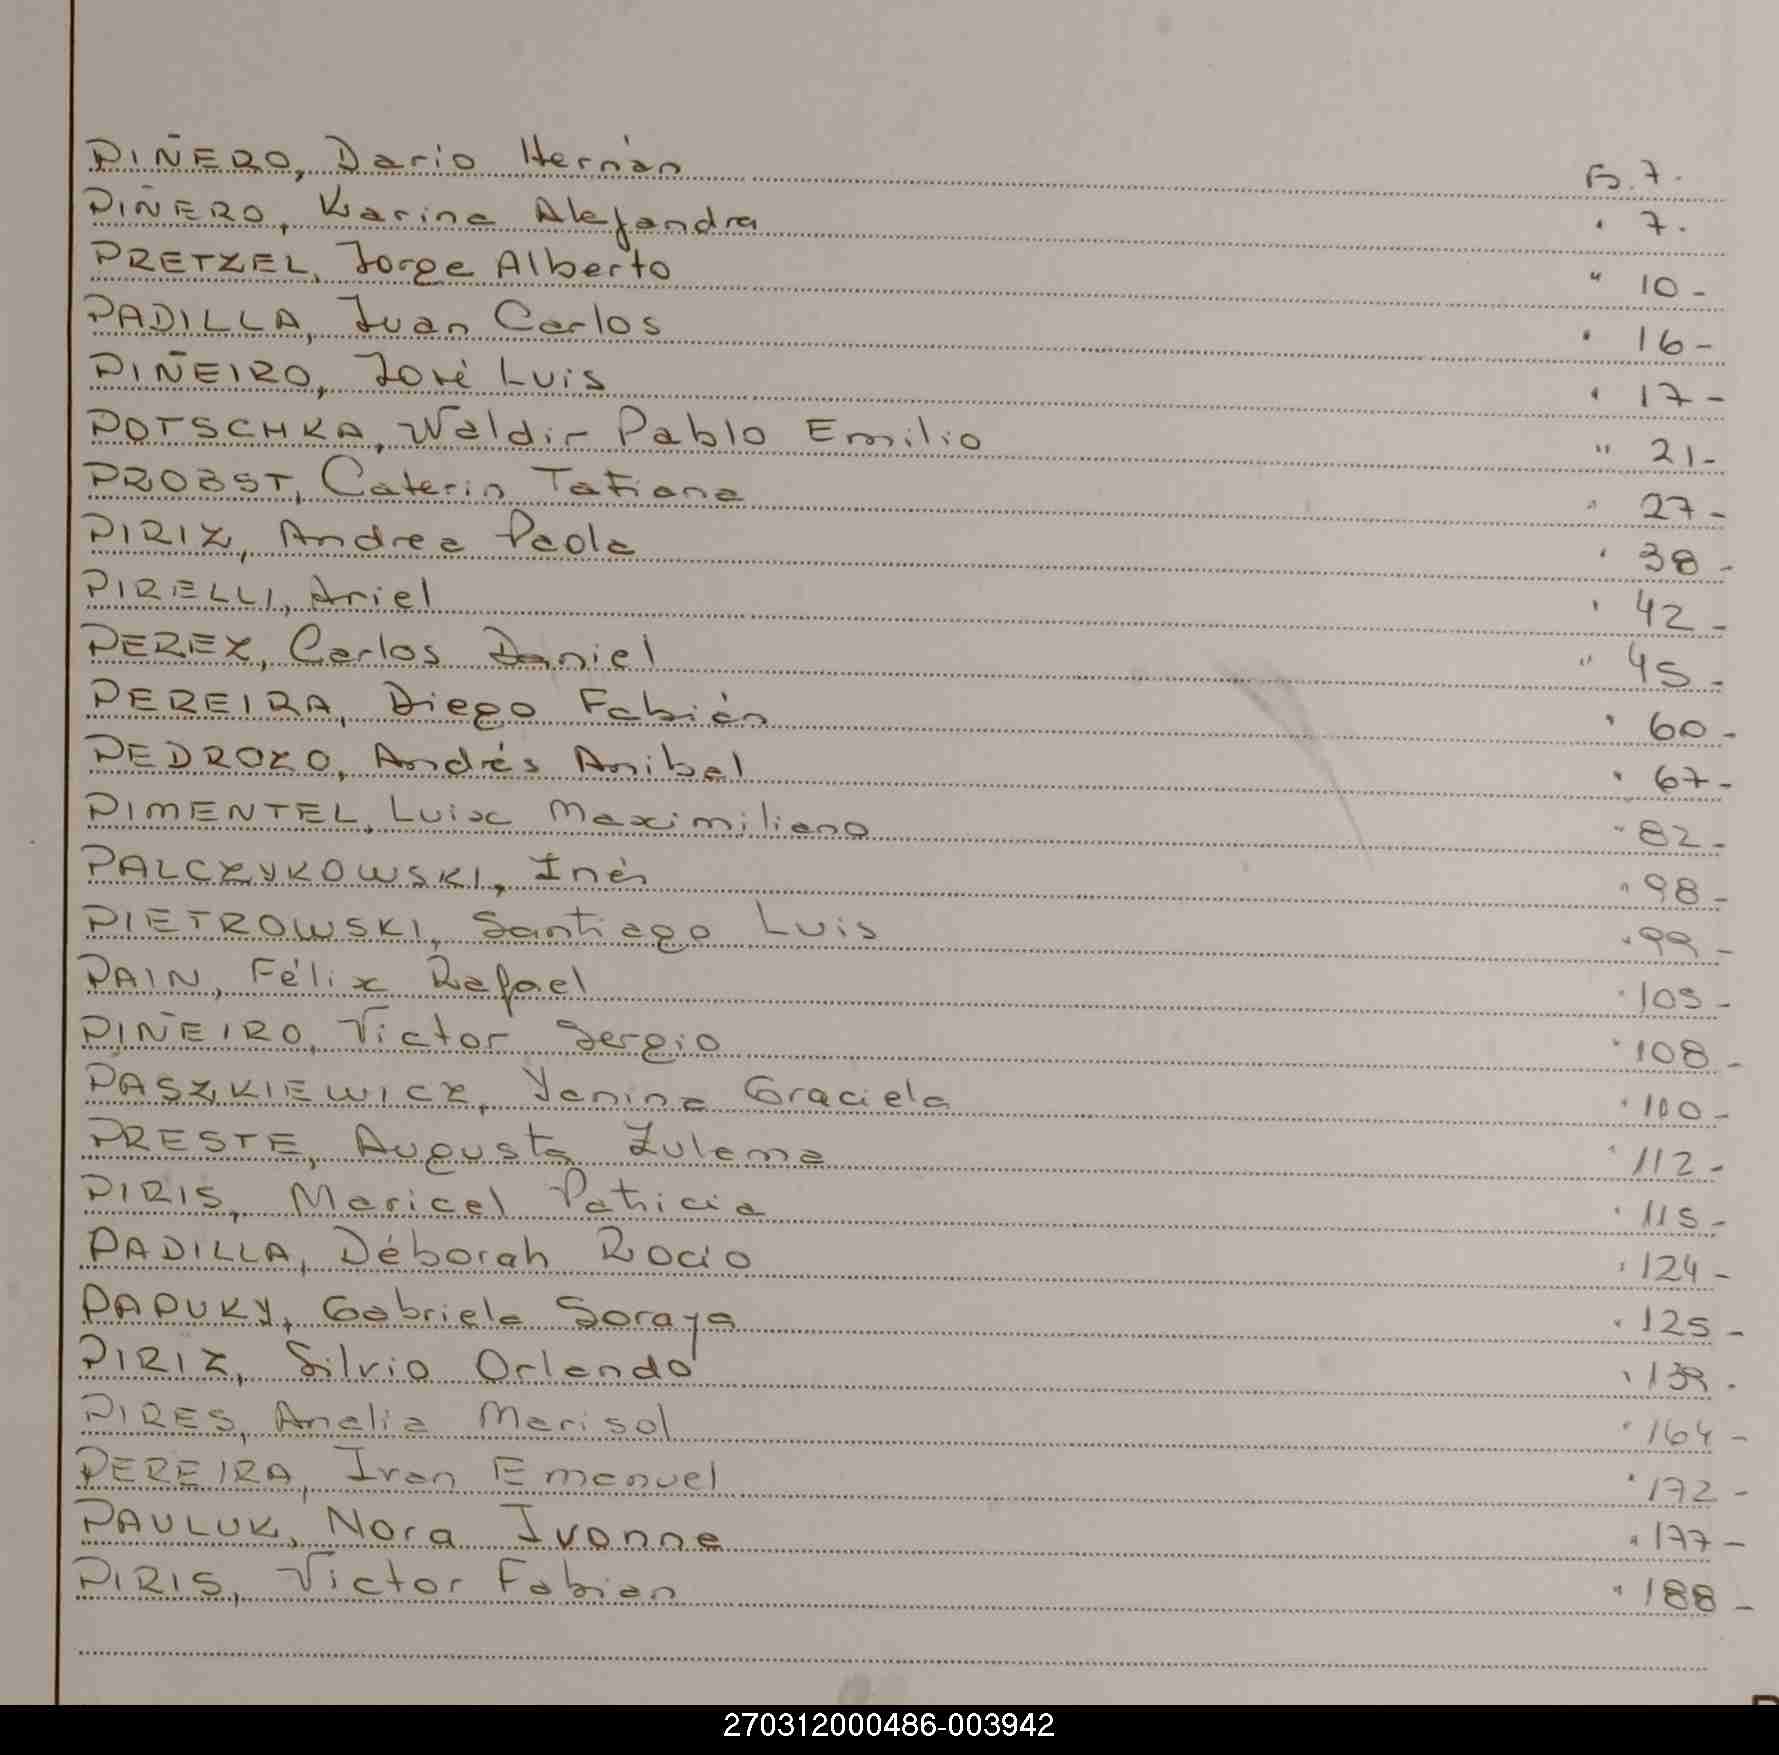 PIÑERO, Dario Hernán Fs. 7.
PIÑERO, Karina Alejandra " 7.
PRETZEL, Jorge Alberto " 10-
PADILLA, Juan Carlos " 16-
PIÑEIRO, José Luis " 17-
POTSCHKA, Waldir Pablo Emilio " 21-
PROBST, Caterin Tatiana " 27-
PIRIZ, Andrea Paola " 38-
PIRELLI, Ariel " 42-
PEREZ, Carlos Daniel " 45-
PEREIRA, Diego Fabián " 60-
PEDROZO, Andrés Anibal " 67-
PIMENTEL, Luix Maximiliano " 82-
PALCZYKOWSKI, Inés " 98-
PIETROWSKI, Santiago Luis " 99-
PAIN, Félix Rafael " 105-
PIÑEIRO, Victor Sergio " 108-
PASZKIEWICZ, Yanina Graciela " 110-
PRESTE, Augusta Zulema " 112-
PIRIS, Maricel Patricia " 115-
PADILLA, Déborah Rocio " 124-
PAPUKY, Gabriela Soraya " 125-
PIRIZ, Silvio Orlando " 139.
PIRES, Analia Marisol " 164-
PEREIRA, Ivan Emanuel " 172-
PAULUK, Nora Ivonne " 177-
PIRIS, Victor Fabian " 188-
270312000486-003942